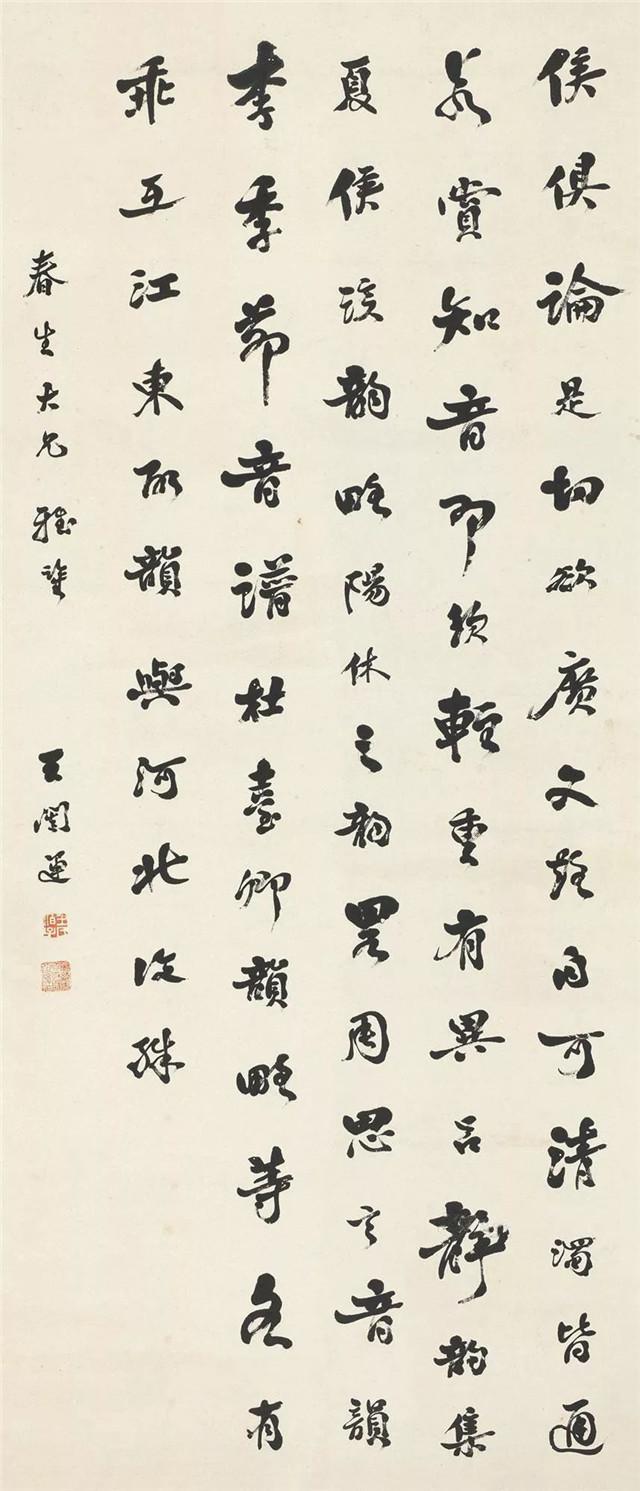 侯俱論是切欲廣文路自可清濁皆通
若賞知音即須輕重有異呂靜韵集
夏侯該韵略陽休之韵畧周思言音韻
李季節音譜杜臺卿韻略等各有
乖互江東取韻與河北復殊
春生大兄雅
王闓運